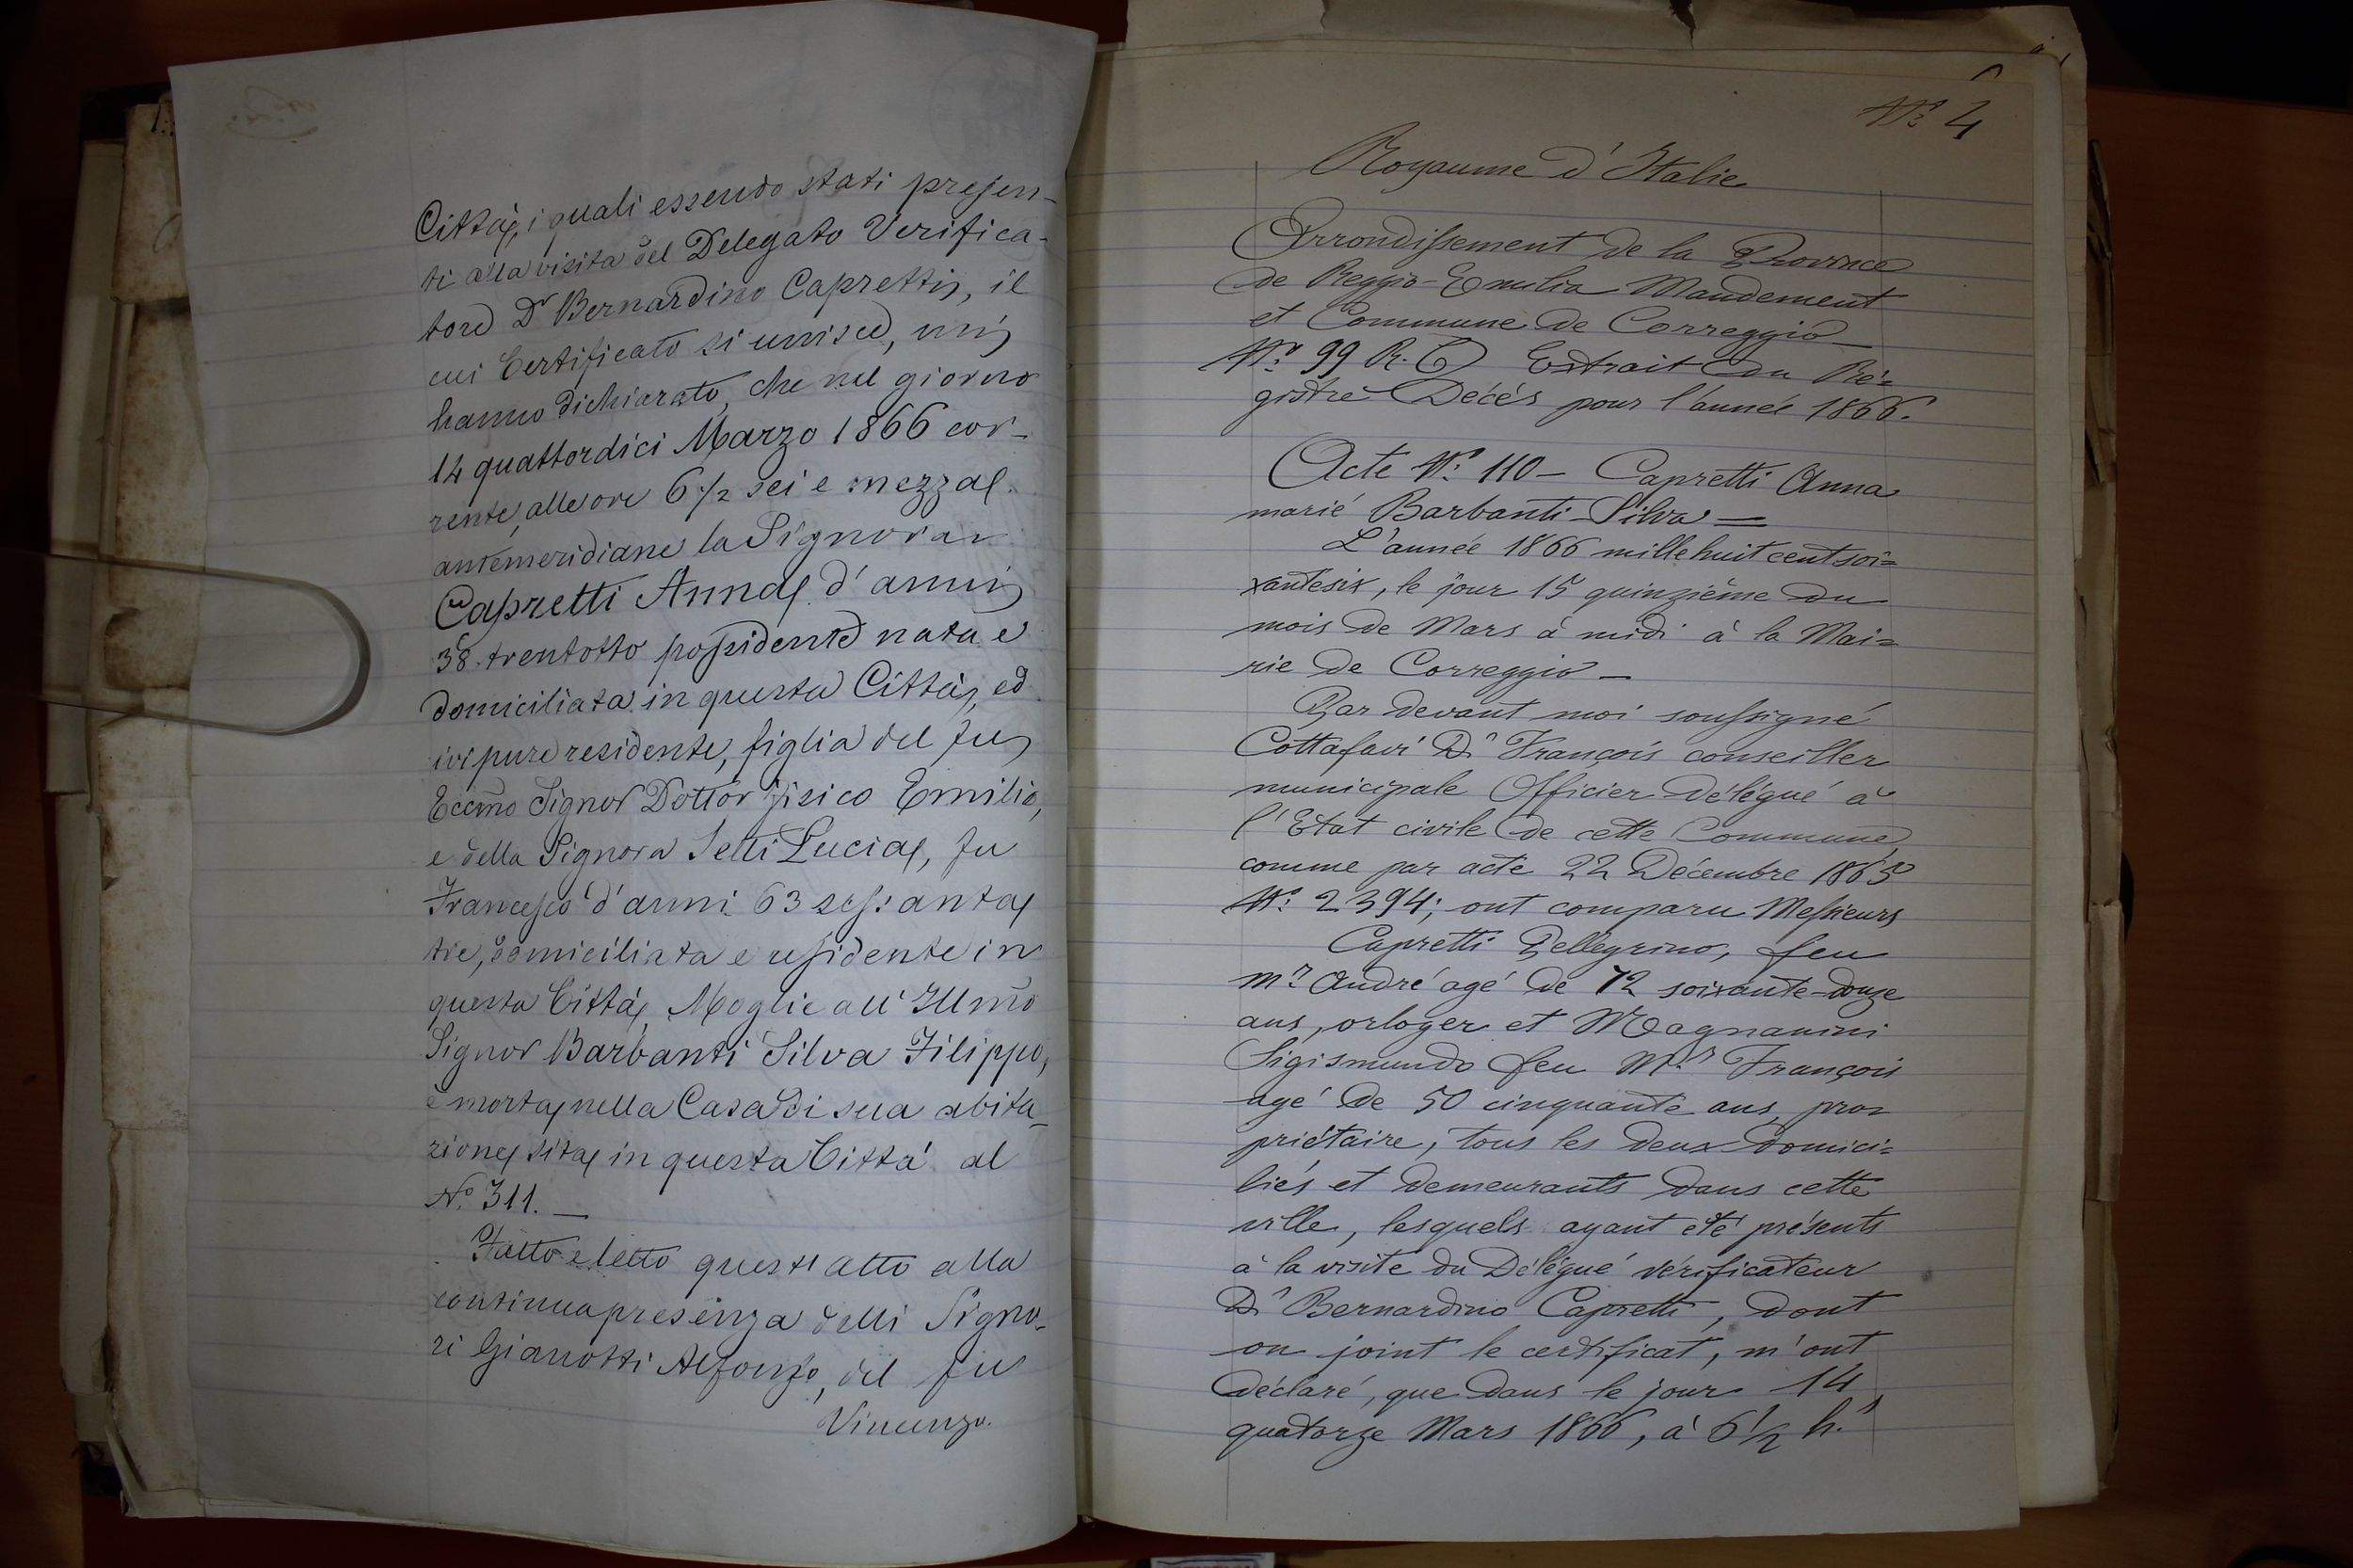 Città, i quali essendo stati presen-
ti alla visita del Delegato Verifica-
tore Dr Bernardino Capretti, il
cui Certificato si unisce, mi
hanno dichiarato, che nel giorno
14 quattordici Marzo 1866 cor-
rente, alle ore 6 1/2 sei e mezza
antemeridiane la Signora
Capretti Anna d'anni
38 trentotto possidente nata e
domiciliata in questa Città, ed
ivi pure residente, figlia del fu
Eccmo Signor Dottor fisico Emilio,
e della Signora Setti Lucia, fu
Francesco d'anni 63 sessanta
tre, domiciliata e residente in
questa Città, Moglie all' Illmo
Signor Barbanti Silva Filippo,
è morta nella Casa di sua abita-
zione sita in questa Città al
No 311. —
Fatto e letto questo atto alla
continua presenza delli Signo-
ri Gianotti Alfonso, del fu
Vincenzo
No 4
Royaume d'Italie
Arrondissement de la Province
de Reggio-Emilia Mandement
et Commune de Correggio —
No 99 R. C. Extrait du Ré=
gistre Décés pour l'année 1866.
Acte No 110 — Capretti Anna
marié Barbanti-Silva =
L'année 1866 mille huit cent soi=
xantesix, le jour 15 quinzième du
mois de Mars à midi à la Mai=
rie de Correggio —
Par devant moi soussigné
Cottafavi Dr François conseiller
municipale Officier délégué à
l'Etat civile de cette Commune,
comme par acte 22 Décembre 1865
No 2394; ont comparu Messieurs
Capretti Pellegrino, feu
Mr André agé de 72 soixante-douze
ans, orloger et Magnanini
Sigismundo feu Mr François
agé de 50 cinquante ans, pro=
priétaire, tous les deux domici=
liés et demeurants dans cette
ville, lesquels ayant été présents
à la visite du Délégué vérificateur
Dr Bernardino Capretti, dont
on joint le certificat, m'ont
déclaré, que dans le jour 14
quatorze Mars 1866, à 6 1/2 h.s